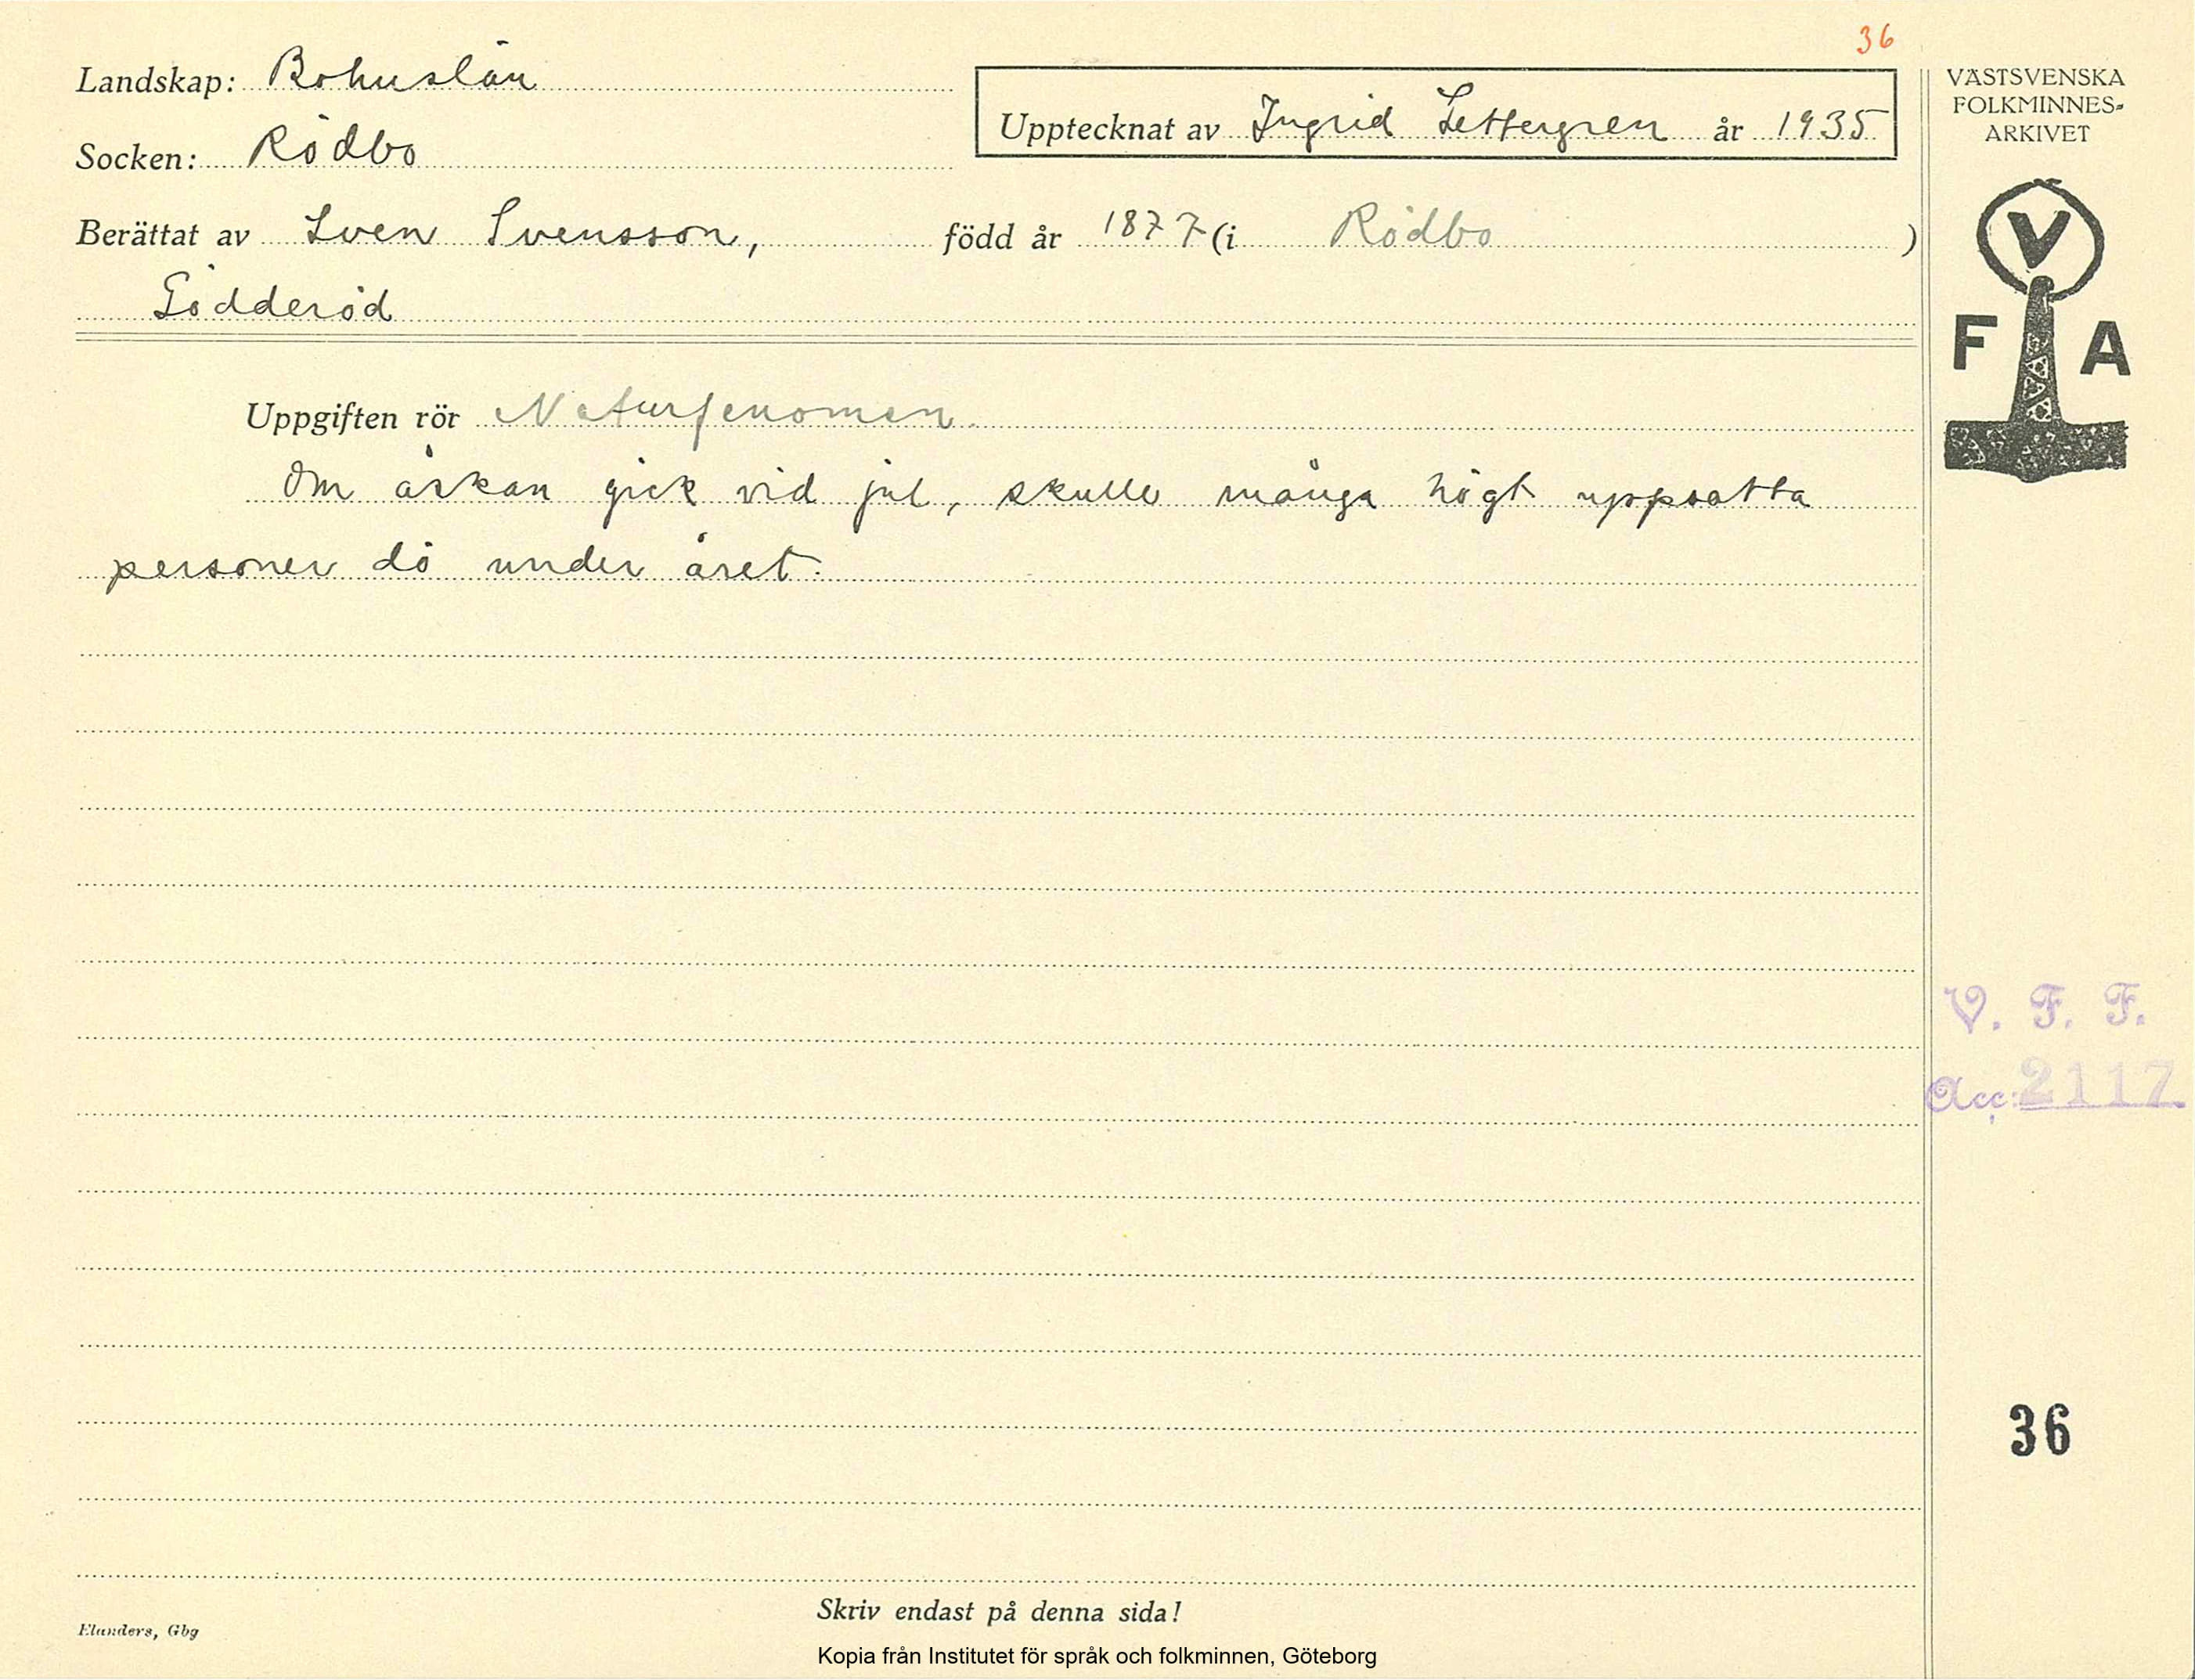 36
Landskap: Bohuslän
Upptecknat av Ingrid Settergren år 1935
Socken: Rödbo
Berättat av Sven Svensson, född år 1877 (i Rödbo)
Södderöd
Uppgiften rör Naturfenomen.
Om åskan gick vid jul, skulle många högt uppsatta
personer dö under året.
VÄSTSVENSKA
FOLKMINNES-
ARKIVET
V
F A
V. F. F.
Acc: 2117.
36
Skriv endast på denna sida!
Elanders, Gbg
Kopia från Institutet för språk och folkminnen, Göteborg